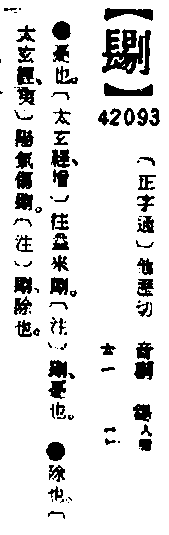 【】
42093
〔正字通〕他歷切 音剔 錫入聲
●憂也。〔太玄經、增〕往益來。〔注〕、憂也。●除也。〔
太玄經、夷〕陽氣傷。〔注〕、除也。